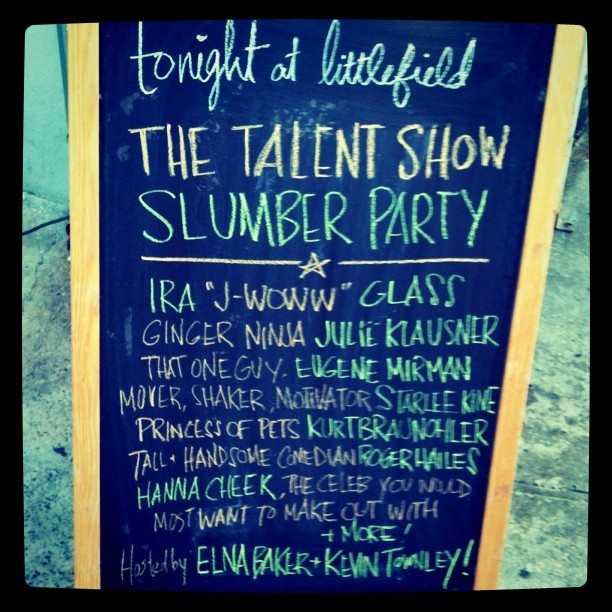 tonight at littlefield
THE TALENT SHOW
SLUMBER PARTY
IRA "J-WOWW" GLASS
GINGER NINJA JULIE KLAUSNER
THAT ONE GUY. EUGENE MIRMAN
MOVER, SHAKER, MOTIVATOR STARLEE KINE
PRINCESS OF PETS KURT BRAUNOHLER
TALL + HANDSOME COMEDIAN ROGER HAILES
HANNA CHEEK, THE CELEB YOU WOULD
MOST WANT TO MAKE OUT WITH
+ MORE!
Hosted by ELNA BAKER + KEVIN TOWNLEY!